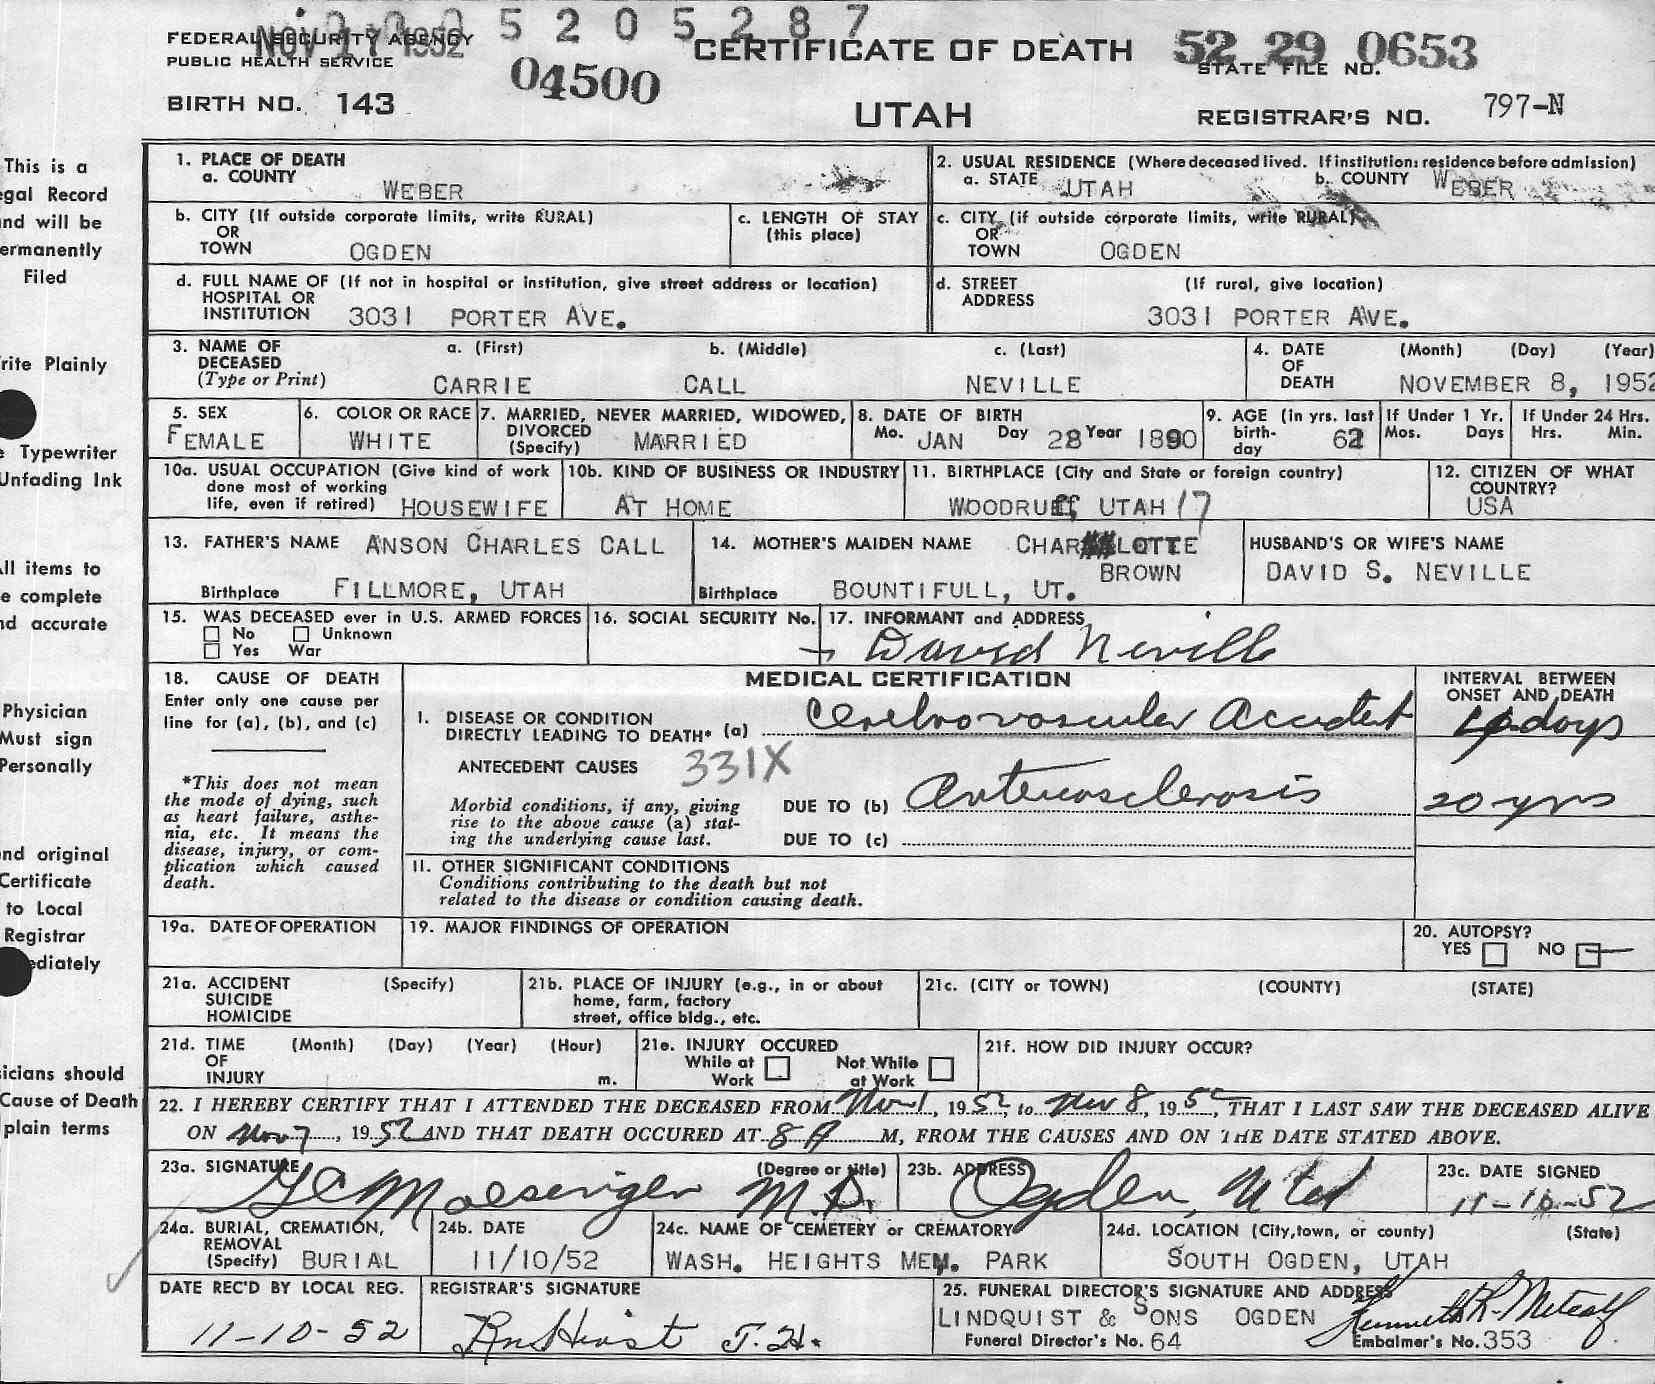 NOV 17 1952 5205287
FEDERAL SECURITY AGENCY CERTIFICATE OF DEATH 52 29 0653
PUBLIC HEALTH SERVICE 04500 STATE FILE NO.
BIRTH NO. 143 UTAH REGISTRAR'S NO. 797-N
This is a
egal Record
nd will be
ermanently
Filed
rite Plainly
e Typewriter
Unfading Ink
All items to
e complete
nd accurate
Physician
Must sign
Personally
nd original
Certificate
to Local
Registrar
ediately
sicians should
Cause of Death
plain terms
1. PLACE OF DEATH
a. COUNTY WEBER
2. USUAL RESIDENCE (Where deceased lived. If institution: residence before admission)
a. STATE UTAH b. COUNTY WEBER
b. CITY (If outside corporate limits, write RURAL)
OR
TOWN OGDEN
c. LENGTH OF STAY
(this place)
c. CITY (if outside corporate limits, write RURAL)
OR
TOWN OGDEN
d. FULL NAME OF (If not in hospital or institution, give street address or location)
HOSPITAL OR
INSTITUTION 3031 PORTER AVE.
d. STREET (If rural, give location)
ADDRESS
3031 PORTER AVE.
3. NAME OF a. (First) b. (Middle) c. (Last)
DECEASED
(Type or Print) CARRIE CALL NEVILLE
4. DATE (Month) (Day) (Year)
OF
DEATH NOVEMBER 8, 1952
5. SEX
FEMALE
6. COLOR OR RACE
WHITE
7. MARRIED, NEVER MARRIED, WIDOWED,
DIVORCED
(Specify) MARRIED
8. DATE OF BIRTH
Mo. JAN Day 28 Year 1890
9. AGE (in yrs. last
birth-
day 62
If Under 1 Yr.
Mos. Days
If Under 24 Hrs.
Hrs. Min.
10a. USUAL OCCUPATION (Give kind of work
done most of working
life, even if retired) HOUSEWIFE
10b. KIND OF BUSINESS OR INDUSTRY
AT HOME
11. BIRTHPLACE (City and State or foreign country)
WOODRUFF, UTAH 17
12. CITIZEN OF WHAT
COUNTRY?
USA
13. FATHER'S NAME ANSON CHARLES CALL
Birthplace FILLMORE, UTAH
14. MOTHER'S MAIDEN NAME CHARLOTTE
BROWN
Birthplace BOUNTIFULL, UT.
HUSBAND'S OR WIFE'S NAME
DAVID S. NEVILLE
15. WAS DECEASED ever in U.S. ARMED FORCES
No Unknown
Yes War
16. SOCIAL SECURITY No.
17. INFORMANT and ADDRESS
David Neville
18. CAUSE OF DEATH
Enter only one cause per
line for (a), (b), and (c)
*This does not mean
the mode of dying, such
as heart failure, asthe-
nia, etc. It means the
disease, injury, or com-
plication which caused
death.
MEDICAL CERTIFICATION
INTERVAL BETWEEN
ONSET AND DEATH
I. DISEASE OR CONDITION
DIRECTLY LEADING TO DEATH* (a) Cerebrovascular Accident
days
ANTECEDENT CAUSES 331X
Morbid conditions, if any, giving
rise to the above cause (a) stat-
ing the underlying cause last.
DUE TO (b) Arteriosclerosis 20 yrs
DUE TO (c)
II. OTHER SIGNIFICANT CONDITIONS
Conditions contributing to the death but not
related to the disease or condition causing death.
19a. DATE OF OPERATION
19. MAJOR FINDINGS OF OPERATION
20. AUTOPSY?
YES NO
21a. ACCIDENT (Specify)
SUICIDE
HOMICIDE
21b. PLACE OF INJURY (e.g., in or about
home, farm, factory
street, office bldg., etc.
21c. (CITY or TOWN) (COUNTY) (STATE)
21d. TIME (Month) (Day) (Year) (Hour)
OF
INJURY m.
21e. INJURY OCCURED
While at Work Not While at Work
21f. HOW DID INJURY OCCUR?
22. I HEREBY CERTIFY THAT I ATTENDED THE DECEASED FROM Nov 1, 1952, to Nov 8, 1952, THAT I LAST SAW THE DECEASED ALIVE
ON Nov 7, 1952 AND THAT DEATH OCCURED AT 8 A M, FROM THE CAUSES AND ON THE DATE STATED ABOVE.
23a. SIGNATURE (Degree or title)
M.D.
23b. ADDRESS
Ogden, Utah
23c. DATE SIGNED
11-10-52
24a. BURIAL, CREMATION,
REMOVAL
(Specify) BURIAL
24b. DATE
11/10/52
24c. NAME OF CEMETERY or CREMATORY
WASH. HEIGHTS MEM. PARK
24d. LOCATION (City, town, or county) (State)
SOUTH OGDEN, UTAH
DATE REC'D BY LOCAL REG.
11-10-52
REGISTRAR'S SIGNATURE
25. FUNERAL DIRECTOR'S SIGNATURE AND ADDRESS
LINDQUIST & SONS OGDEN Kenneth R. Metcalf
Funeral Director's No. 64 Embalmer's No. 353